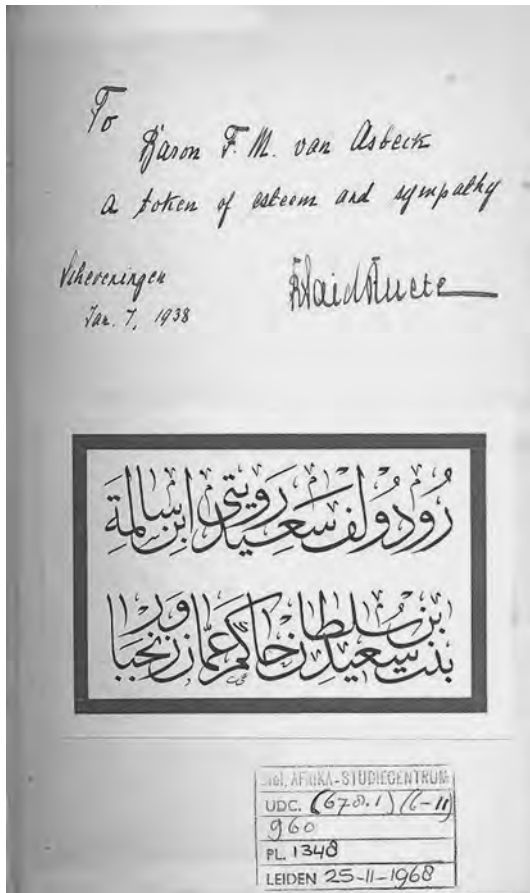 To
Baron F. M. van Asbeck
a token of esteem and sympathy
Scheveningen
Jan. 7, 1938
RSaidRuete
رُودُولف سَعِيد رُويتى ابن سَالمة
بنت سَعِيد بن سُلطان حَاكم عُمان وزنجبار
Bibl. AFRIKA-STUDIECENTRUM
UDC. (678.1) (6-11)
960
PL. 1348
LEIDEN 25-11-1968